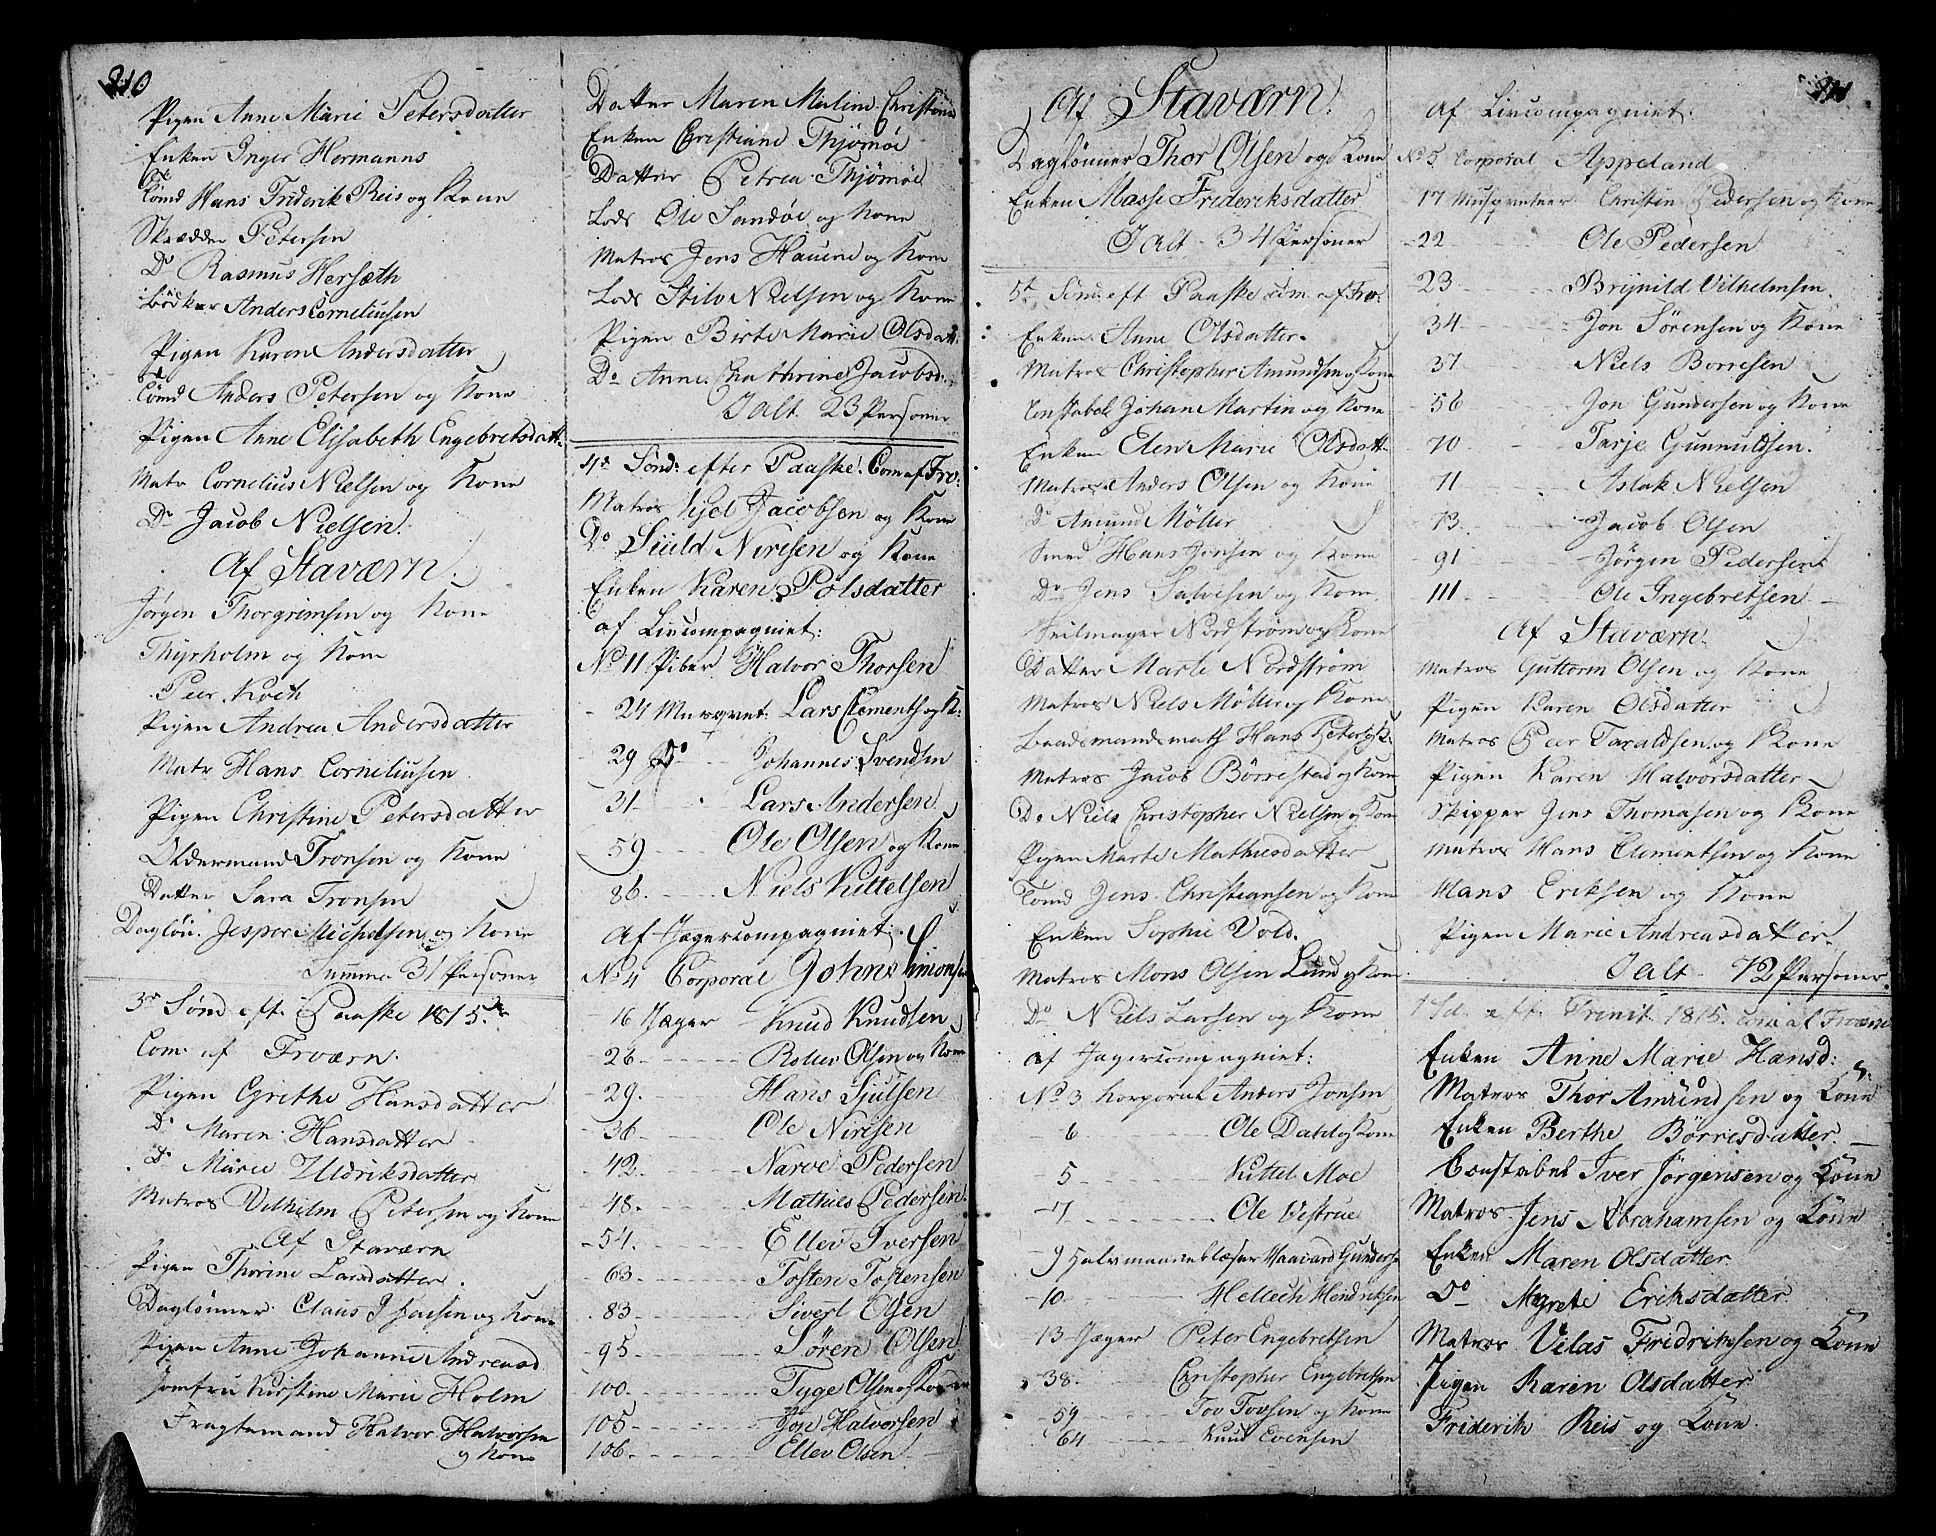 210
Pigen Anne Marie Petersdatter
Enken Inger Hermanns
Tømd Hans Friderik Reis og Kone
Skrædder Petersen
Do Rasmus Hersæth
Bödker Anders Corneliusen
Pigen Karen Andersdatter
Tømd Anders Petersen og Kone
Pigen Anne Elisabeth Engebretsdatt:
Matr Cornelius Nielsen og Kone
Do Jacob Nielsen.
Af Staværn.
Jørgen Thorgrimsen og Kone
Thyrholm og Kone
Peer Koch
Pigen Andrea Andersdatter
Matr Hans Corneliusen
Pigen Christine Petersdatter
Oldermand Tronsen og Kone
Datter Sara Tronsen
Dagløn. Jesper Michelsen og Kone
Summa 31 Personer
3die Sønd eft. Paaske 1815.
Com. af Frværn.
Pigen Grethe Hansdatter
Do Maren Hansdatter
Do Marie Uldriksdatter
Matros Vilhelm Petersen og Kone
Af Staværn
Pigen Thorine Larsdatter.
Daglønner Claus Isacsen og Kone
Pigen Anne Johanne Andreasd
Jomfru Kirstine Marie Holm
Fragtemand Halvor Halvorsen
og Kone
Datter Maren Malene Christine
Enken Christiane Thjømøe
Datter Petrea Thjømøe
Lods Ole Sandøe og Kone
Matros Jens Hauene og Kone
Lods Stilv Nielsen og Kone
Pigen Birte Marie Olsdatt:
Do Anne Chathrine Jacobsd:
I alt 23 Personer
4de Sønd: efter Paaske. Com af Frv:
Matros Kjel Jacobsen og Kone
Do Siuld Nirisen og Kone
Enken Karen Polsdatter
af Livcompagniet:
No 11 Piber Halvor Thorsen
- 24 Musqvet: Lars Clements og K:
- 29 Do Johannes Svendsen
31 Lars Andersen
59 Ole Olsen og Kone
86. Niels Kittelsen
Af Jægercompagniet:
No 4 Corporal Johns Simonsen
- 16 Jæger Knud Knudsen
- 26 Rollev Olsen og Kone
- 29. Hans Sjulsen
- 36 Ole Nirisen
- 42 Narve Pedersen
- 48. Mathies Pedersen
- 54. Ellev Iversen
- 63 Tosten Tostensen
. 83 Sivert Olsen
- 95 Søren Olsen
100. Tyge Olsen og Kone
105 Jon Halvorsen
106. Ellev Olsen
Af Staværn.
Daglønner Thor Olsen og Kone
Enken Masse Frideriksdatter
I alt - 34 Personer
5te Sønd: eft Paaske com. af Frv:
Enken Anne Olsdatter.
Matros Christopher Amundsen og Kone
Constabel Johan Martin og Kone
Enken Elen Marie Olsdatt:
Matros Anders Olsen og Kone
Do Amund Möller
Smed Hans Jonsen og Kone
Do Jens Salvesen og Kone
Seilmager Nordstrøm og Kone
Datter Marte Nordstrøm
Matros Niels Möller og Kone
Baadsmandsmath Hans Peter og K:
Matros Jacob Börrestad og Kone
Do Niels Christopher Nielsen og Kone
Pigen Marte Mathiesdatter
Tømd Jens Christiansen og Kone
Enken Sophie Vold.
Matros Mons Olsen Lund og Kone
Do Niels Larsen og Kone
af Jægercompagniet:
No 3 Korporal Anders Jonsen
- 6 Ole Dahl og Kone
- 5 Kittel Moe
- 7 Ole Vestrue
- 9 Halvmaaneblæser Vaavard Gunders
- 10 Hellech Hendriksen
- 13 Jæger Peter Engebretsen
- 38. Christopher Engebretsen
- 59 Tov Tovsen og Kone
- 64 Knud Evensen
211
Af Livcompagniet.
No 5 Corporal Appeland
17 Musqveteer Christen Pedersen og Kone
- 22 Ole Pedersen
- 23 Brynild Vilhelmsen.
- 34 Jon Sørensen og Kone
- 37 Niels Borresen
- 56 Jon Gundersen og Kone
- 70 Tarje Gunnuldsen.
- 71 Aslak Nielsen
- 73. Jacob Olsen
- 91 Jörgen Pedersen
- 111 Ole Ingebretsen
Af Staværn.
Matros Guttorm Olsen og Kone
Pigen Karen Olsdatter
Matros Peer Taraldsen og Kone
Pigen Karen Halvorsdatter
Skipper Jens Thomasen og Kone
Matros Hans Clementsen og Kone
Hans Eriksen og Kone
Pigen Marie Andreasdatter
I alt - 72 Personer.
1 Sd. eft. Trinit. 1815. Com af Frværn
Enken Anne Marie Hansd:
Matros Thor Amundsen og Kone
Enken Berthe Börresdatter.
Constabel Iver Jörgensen og Kone
Matros Jens Abrahamsen og Kone
Enken Maren Olsdatter
Do Mgrete Eriksdatter
Matros Vilas Fridriksen og Kone
Pigen Karen Olsdatter
Friderik Reis og Kone.